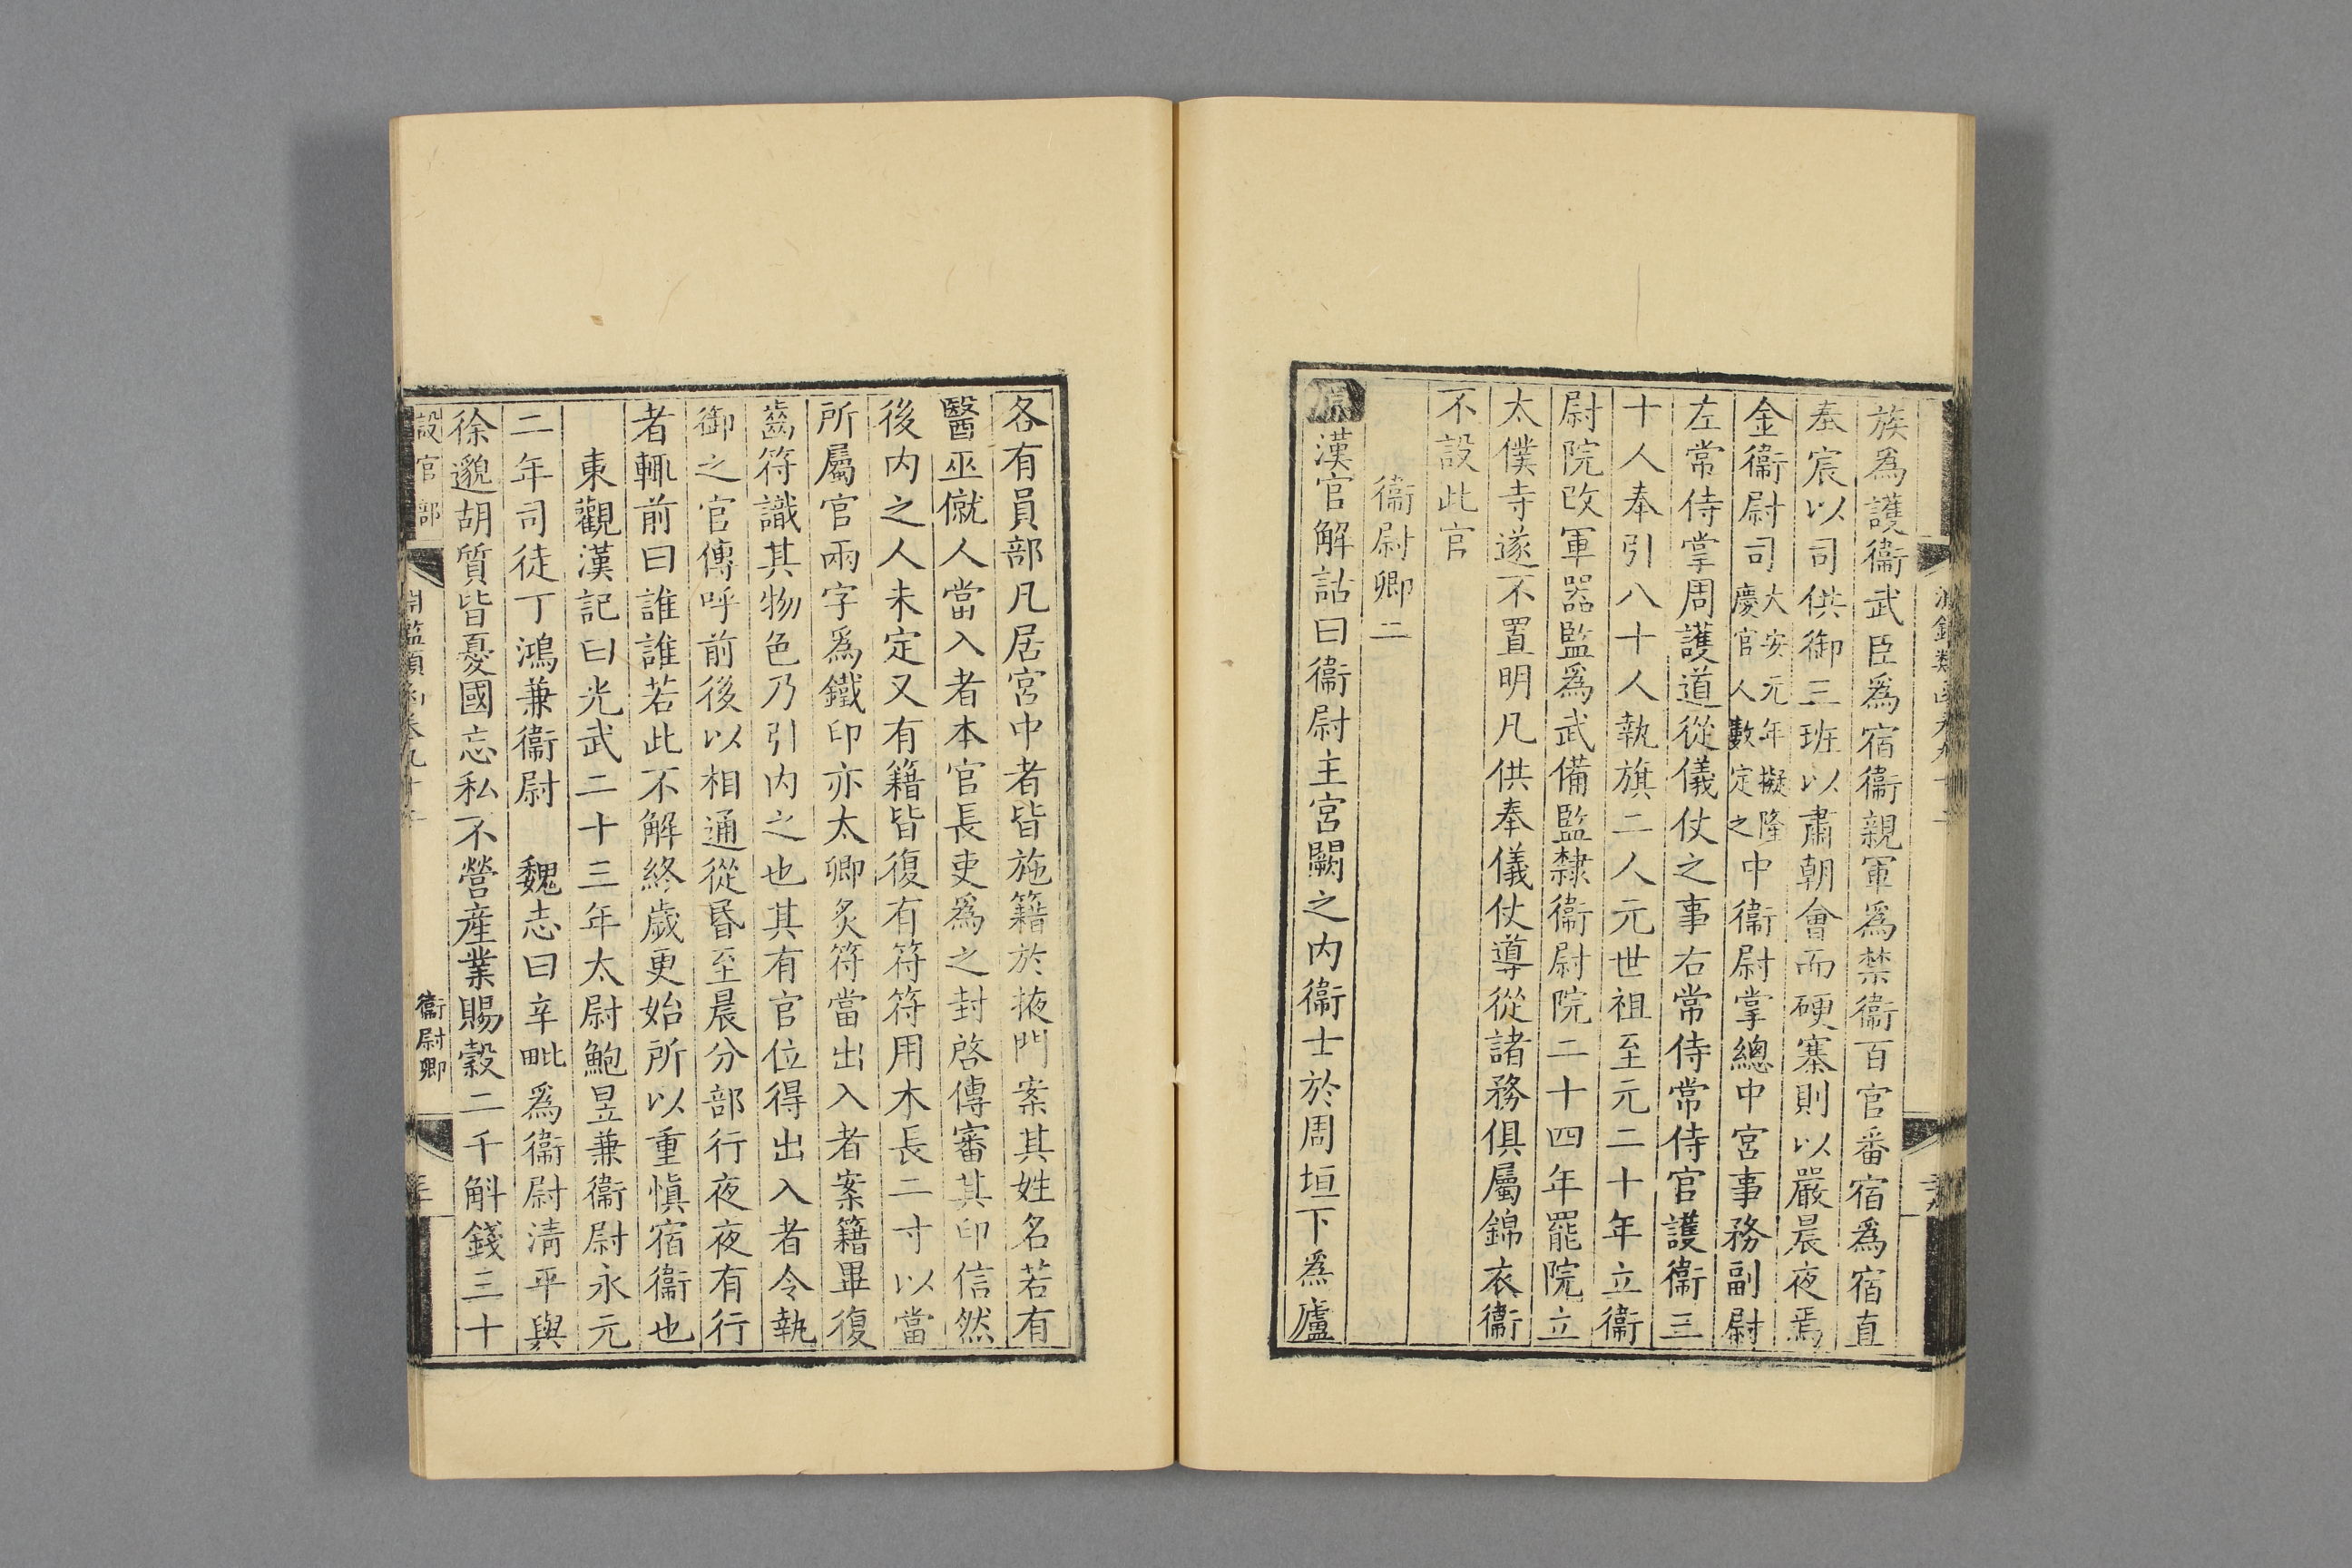 族爲護衞武臣爲宿衞親軍爲禁衞百官番宿爲宿直
奉宸以司供御三班以肅朝會而硬寨則以嚴晨夜焉
金衞尉司大安元年擬隆慶官人數定之中衞尉掌總中宮事務副尉
左常侍掌周護道從儀仗之事右常侍常侍官護衞三
十人奉引八十人執旗二人元世祖至元二十年立衞
尉院改軍器監爲武備監隸衞尉院二十四年罷院立
太僕寺遂不置明凡供奉儀仗導從諸務俱屬錦衣衞
不設此官
衞尉卿二
原漢官解詁曰衞尉主宮闕之內衞士於周垣下爲廬
各有員部凡居宮中者皆施籍於掖門案其姓名若有
醫巫僦人當入者本官長吏爲之封啓傳審其印信然
後內之人未定又有籍皆復有符符用木長二寸以當
所屬官兩字爲鐵印亦太卿炙符當出入者案籍畢復
齒符識其物色乃引內之也其有官位得出入者令執
御之官傳呼前後以相通從昏至晨分部行夜夜有行
者輒前曰誰誰若此不解終歲更始所以重愼宿衞也
東觀漢記曰光武二十三年太尉鮑昱兼衞尉永元
二年司徒丁鴻兼衞尉 魏志曰辛毗爲衞尉淸平與
徐邈胡質皆憂國忘私不營產業賜穀二千斛錢三十
設官部
衞尉卿